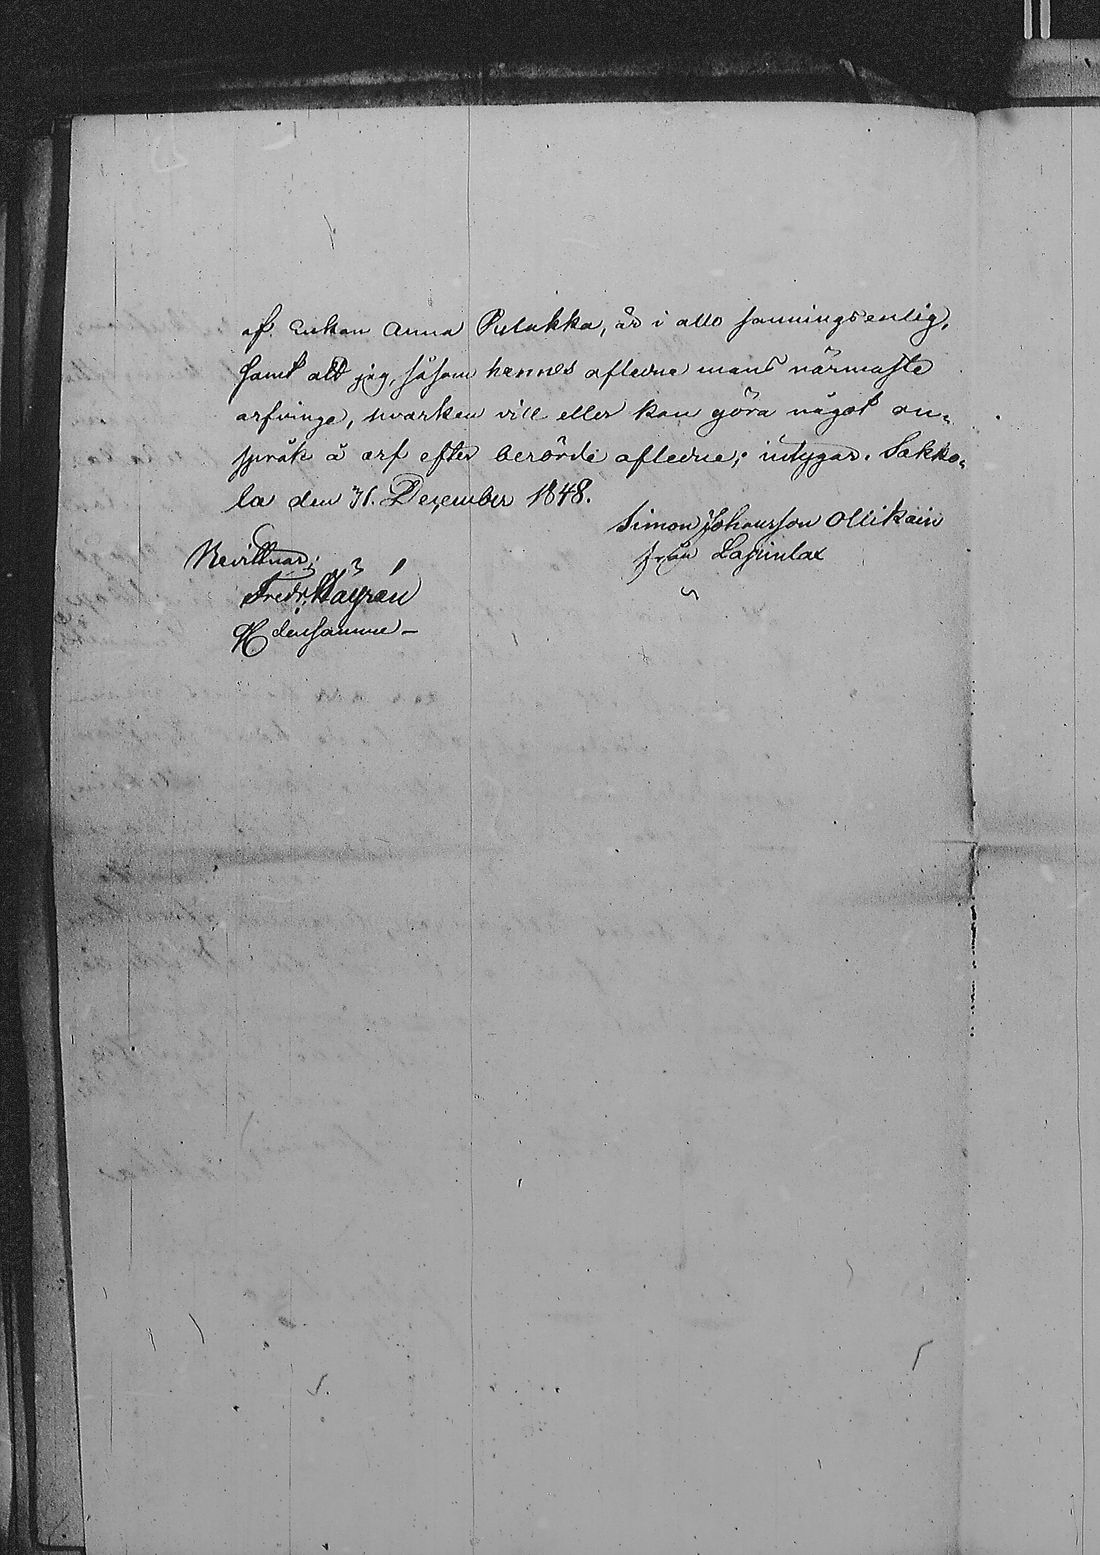 af Enkan Anna Pulakka, är i allo sanningsenlig,
samt att jag, såsom hennes aflidne mans närmaste
arfvinge, hvarken vill eller kan göra något an-
språk å arf efter berörde aflidne; intygar. Sakko-
la den 31. December 1848.
Simon Johansson Ollikain
från Lapinlax
Bevittnar;
Fredr. Häyrén
densamme –